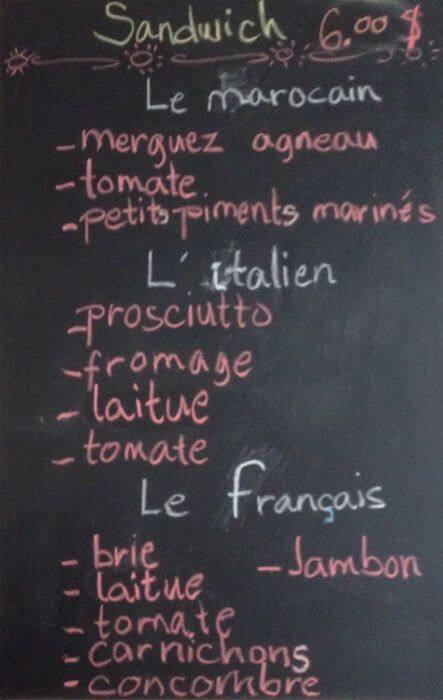 Sandwich 6.00 $
Le marocain
- merguez agneau
- tomate
- petits piments marinés
L'italien
- prosciutto
- fromage
- laitue
- tomate
Le français
- brie - Jambon
- laitue
- tomate
- carnichons
- concombre